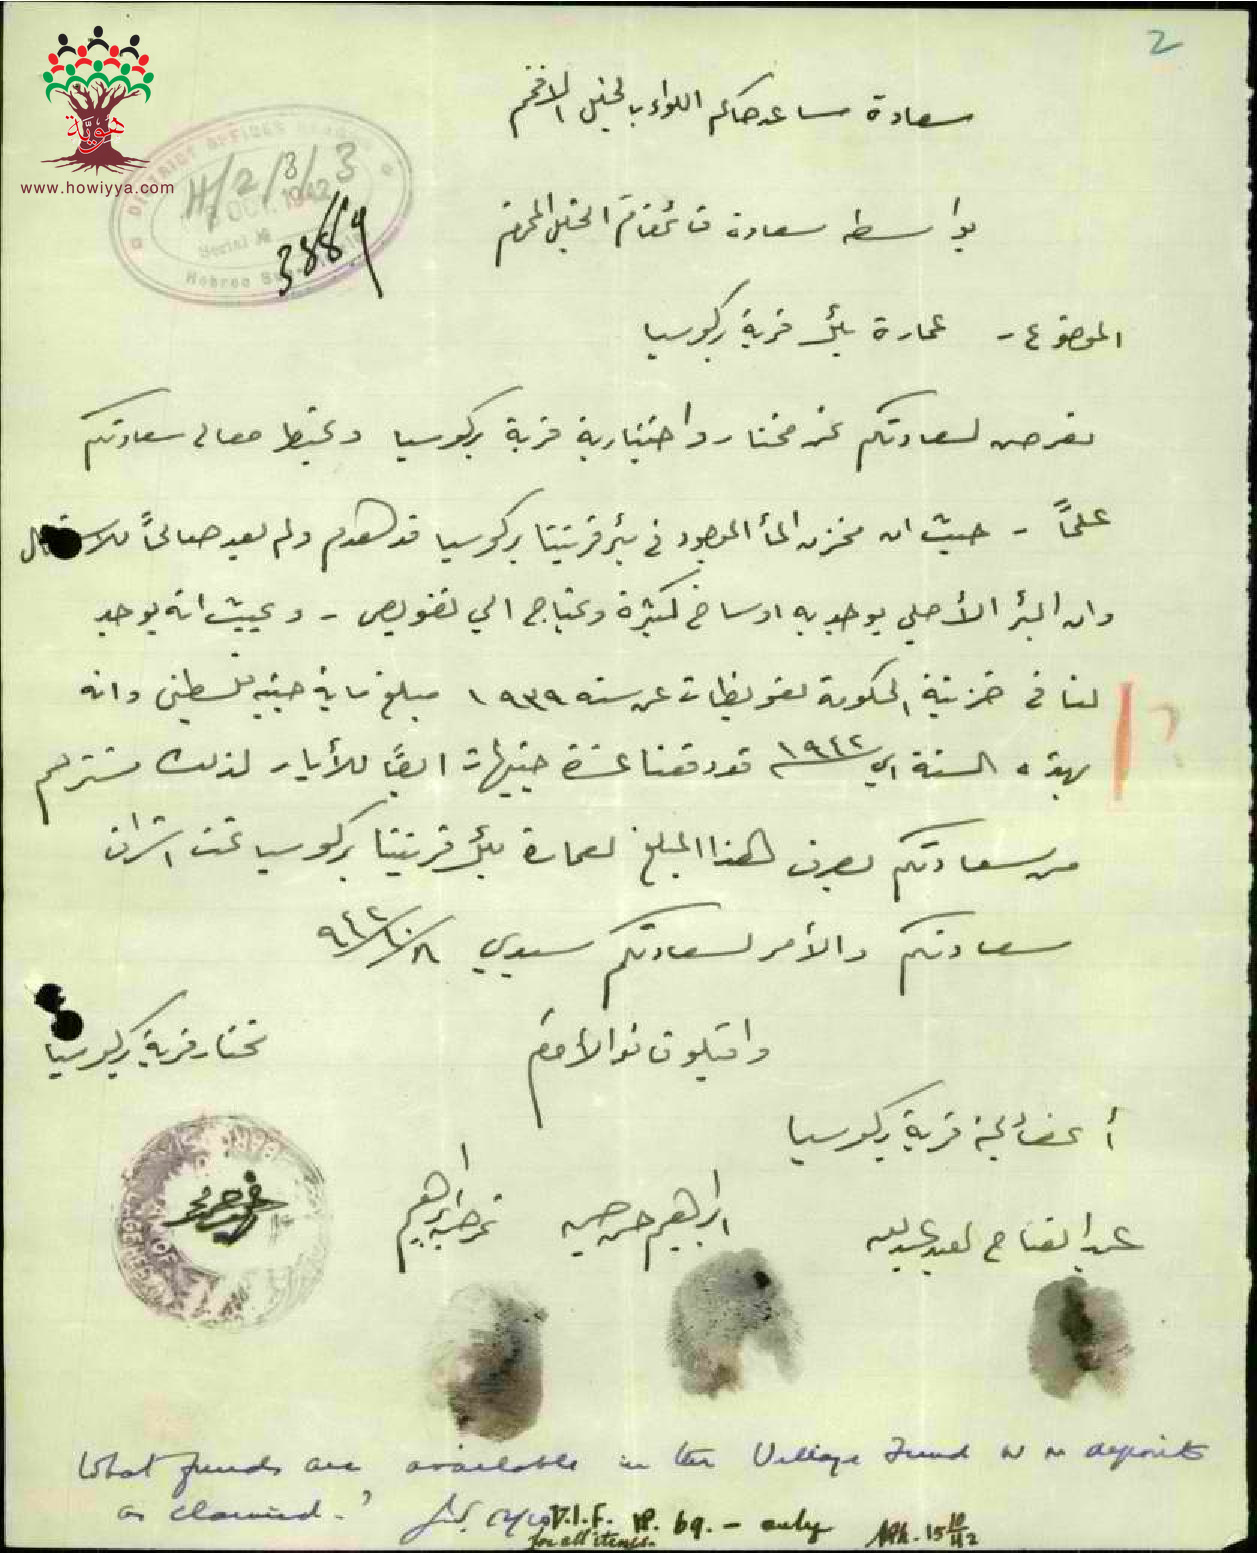 2
هويّة
www.howiyya.com
DISTRICT OFFICES HEBRON
H/2/3/3
OCT. 1942
Serial №
3889
Hebron
سعادة مساعد حاكم اللواء بالخليل الافخم
بواسطه سعادة قائمقام الخليل المحترم
الموضوع - عمارة بئر قرية بركوسيا
نعرض لسعادتكم نحن مختار واختيارية قرية بركوسيا ونحيط معالي سعادتكم
علماً - حيث ان مخزن المأ الموجود في بئر قريتنا بركوسيا قد هدم ولم يعد صالحاً
وان البئر الأصلي يوجد به اوساخ كثيرة ويحتاج الي تعويض - وبحيث انه يوجد
لنا في خزينة الحكومة تعويظات عن سنه ١٩٣٩ مبلغ ماية جنيه فلسطيني وانه
بهذه السنة اي ١٩٤٢ قد دفعنا عشرة جنيهات ايضاً للأبار لذلك نسترحم
من سعادتكم بصرف هذا المبلغ لعمارة بئر قريتنا بركوسيا تحت اشراف
سعادتكم والأمر لسعادتكم سيدي ٩٤٢/١٠/
واقبلوا فائق الاحترام
مختار قرية بركوسيا
أعضأ لجنة قرية بركوسيا
عبد الفتاح
ابراهيم حسن
ابراهيم
What funds are available in the Village Fund or on deposit
as claimed.?
V.I.F. LP. 69. - only
for all items.
15/10/42